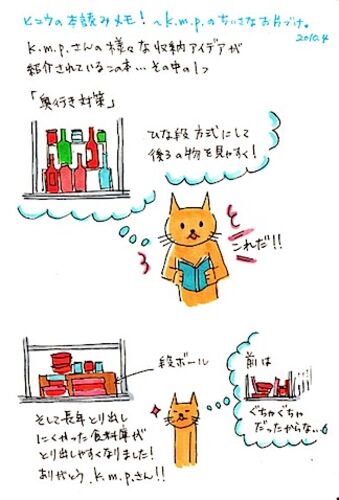 ヒユウの本読みメモ！〜k.m.p.のちいさなお片づけ。
2010.4
k.m.p.さんの様々な収納アイデアが
紹介されているこの本…その中の1つ
「奥行き対策」
ひな段方式にして
後ろの物を見やすく！
これだ!!
段ボール
前は
ぐちゃぐちゃ
だったからな…
そして長年とり出し
にくかった食料庫が
とり出しやすくなりました！
ありがとう k.m.p.さん!!